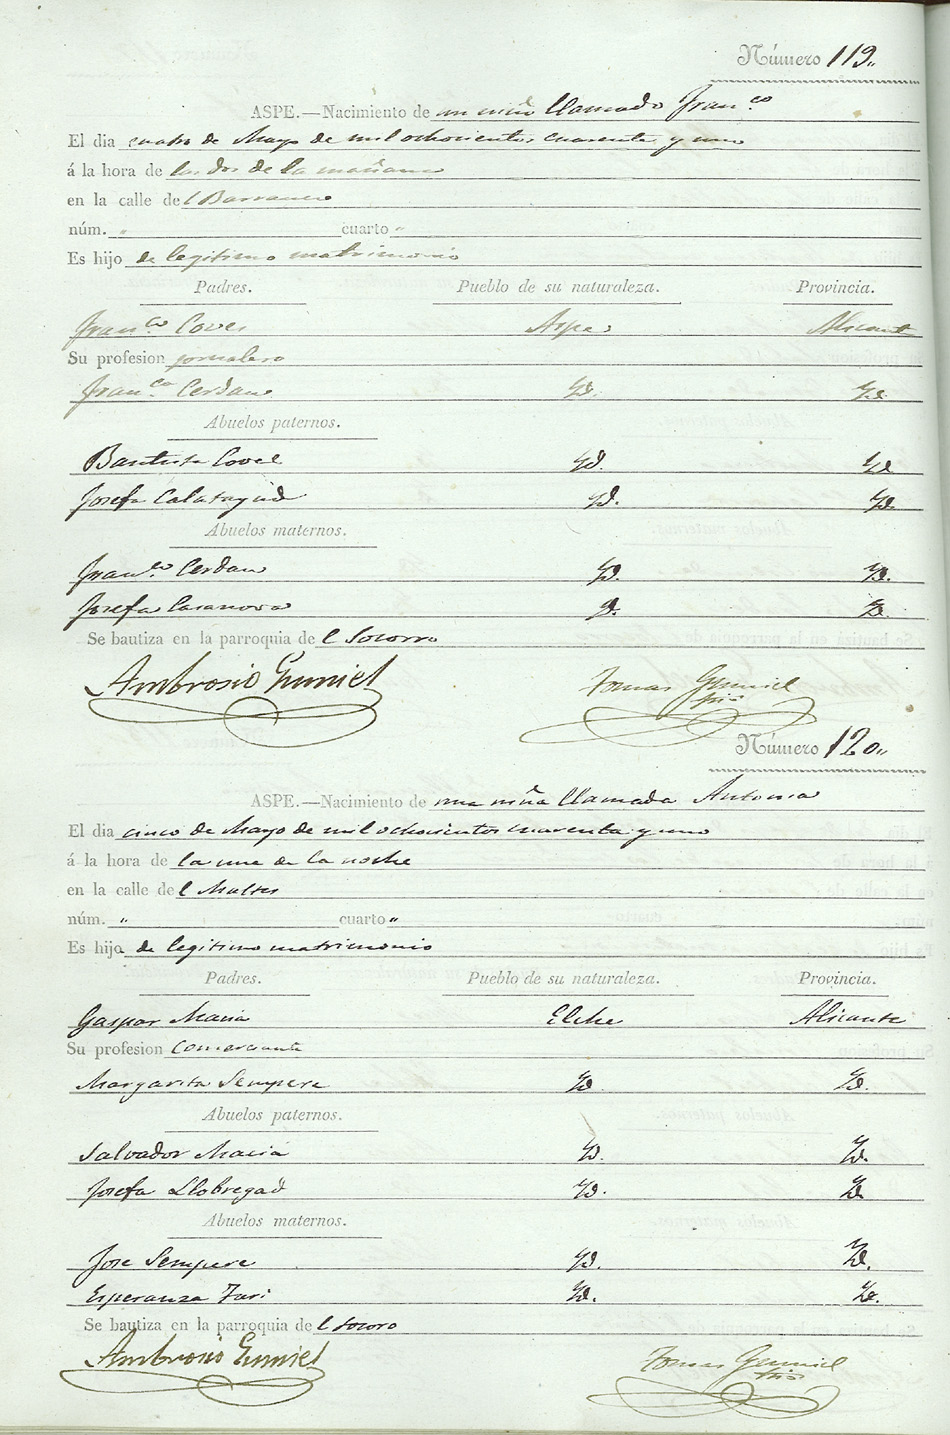 Número 119.
ASPE.—Nacimiento de un niño llamado Fran.co
El dia cuatro de Mayo de mil ochocientos cuarenta y uno
á la hora de las dos de la mañana
en la calle del Barranco
núm. " cuarto "
Es hijo de legitimo matrimonio
Padres. Pueblo de su naturaleza. Provincia.
Fran.co Coves Aspe Alicante
Su profesion jornalero
Fran.ca Cerdan Yd. Yd.
Abuelos paternos.
Bautista Coves Yd. Yd
Josefa Calatayud Yd. Yd.
Abuelos maternos.
Fran.co Cerdan Yd. Yd.
Josefa Casanova Yd. Yd.
Se bautiza en la parroquia del Socorro
Ambrosio Gumiel Tomas Gumiel
Srio
Número 120.
ASPE.—Nacimiento de una niña llamada Antonia
El dia cinco de Mayo de mil ochocientos cuarenta y uno
á la hora de la una de la noche
en la calle del
núm. " cuarto "
Es hijo de legitimo matrimonio
Padres. Pueblo de su naturaleza. Provincia.
Gaspar Macia Elche Alicante
Su profesion comerciante
Margarita Sempere Yd. Yd.
Abuelos paternos.
Salvador Maciá Yd. Yd.
Josefa Llobregad Yd. Yd.
Abuelos maternos.
Jose Sempere Yd. Yd.
Esperanza Yd. Yd.
Se bautiza en la parroquia del Socoro
Ambrosio Gumiel Tomas Gumiel
Srio